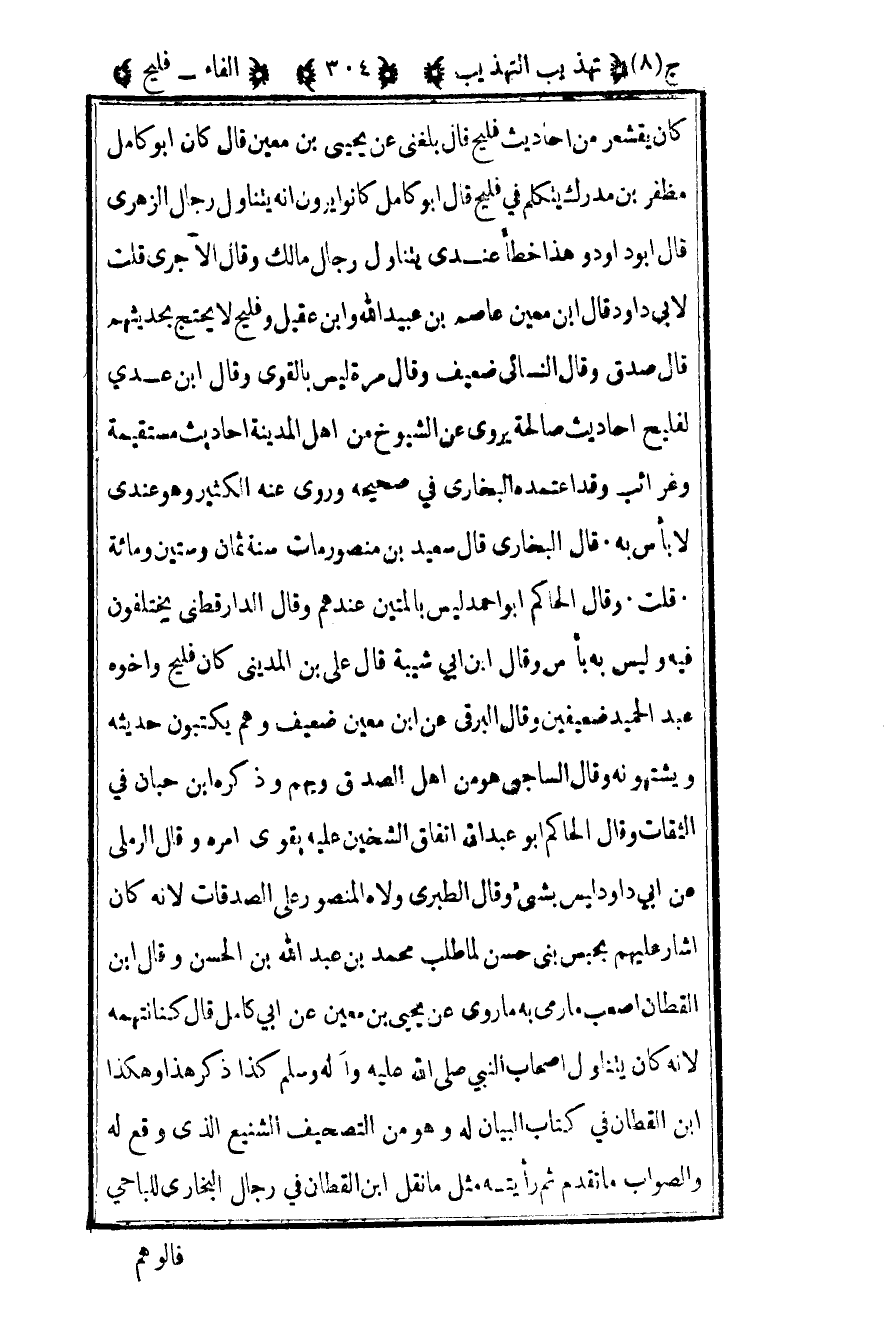 ج (٨) تهذيب التهذيب ٣٠٤ الفاء ـ فليح
كان يقشعر من احاديث فليح قال بلغنى عن يحيى بن معين قال كان ابو كامل
مظفر بن مدرك يتكلم في فليح قال ابو كامل كانوا يرون انه يتناول رجال الزهرى
قال ابو داود و هذا خطأ عندى يتناول رجال مالك وقال الآجرى قلت
لابي داود قال ابن معين عاصم بن عبيد الله وابن عقيل و فليح لا يحتج بحديثهم
قال صدق وقال النسائى ضعيف وقال مرة ليس بالقوى وقال ابن عدي
لفليح احاديث صالحة يروى عن الشيوخ من اهل المدينة احاديث مستقيمة
وغرائب وقد اعتمده البخارى في صحيحه وروى عنه الكثير وهو عندى
لا بأس به ٠ قال البخارى قال سعيد بن منصور مات سنة ثمان وستين ومائة
٠ قلت ٠ وقال الحاكم ابو احمد ليس بالمتين عندهم وقال الدارقطنى يختلفون
فيه و ليس به بأس وقال ابن ابي شيبة قال على بن المدينى كان فليح واخوه
عبد الحميد ضعيفين وقال البرقى عن ابن معين ضعيف و هم يكتبون حديثه
و يشتهونه وقال الساجى هو من اهل الصدق ويهم و ذكره ابن حبان في
الثقات وقال الحاكم ابو عبد الله اتفاق الشيخين عليه يقوى امره و قال الرملى
عن ابي داود ليس بشئ وقال الطبرى ولاه المنصور على الصدقات لانه كان
اشار عليهم بحبس بنى حسن لما طلب محمد بن عبد الله بن الحسن و قال ابن
القطان اصعب ما رمى به ما روى عن يحيى بن معين عن ابي كامل قال كنا نتهمه
لانه كان يتناول اصحاب النبي صلى الله عليه وآله وسلم كذا ذكر هذا وهكذا
ابن القطان في كتاب البيان له و هو من التصحيف الشنيع الذى وقع له
والصواب ما تقدم ثم رأيته مثل ما نقل ابن القطان في رجال البخارى للباجي
فالوهم